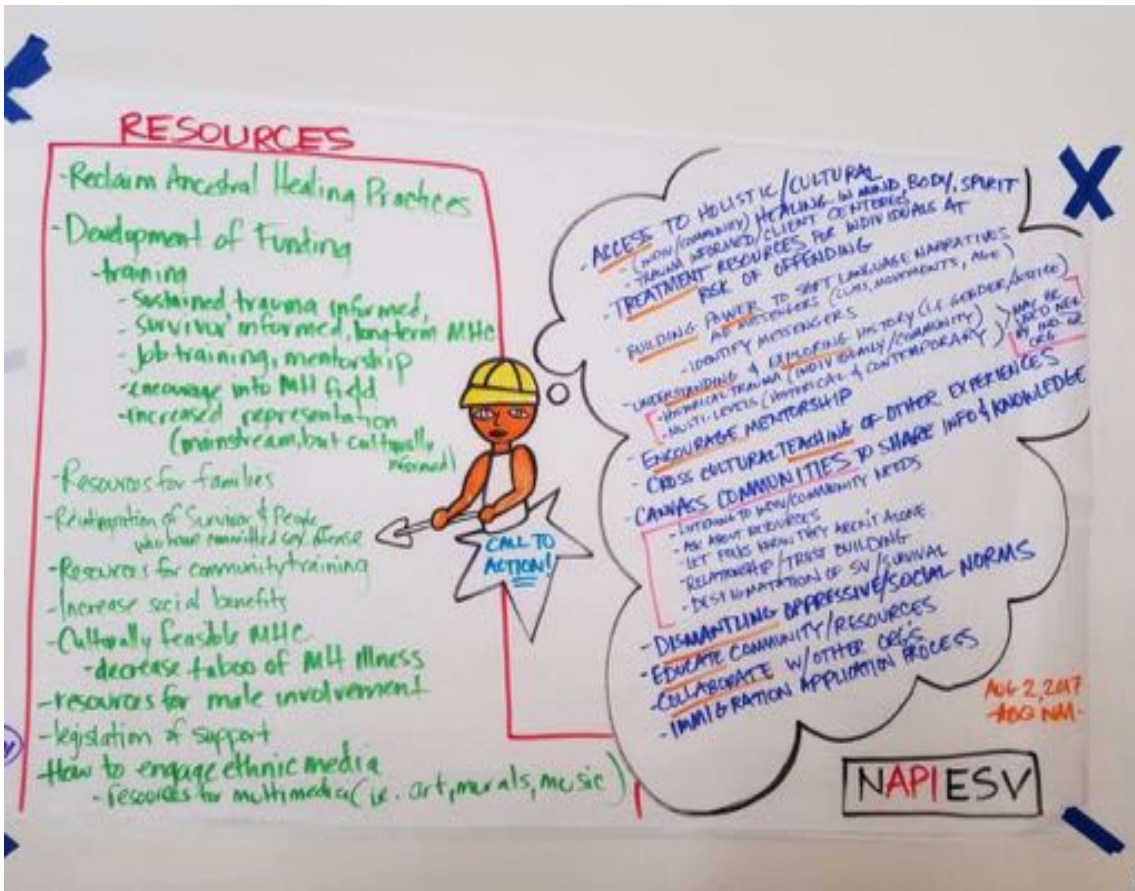 RESOURCES
-Reclaim Ancestral Healing Practices
-Development of Funding
-training
-sustained, trauma informed,
-survivor informed, long-term MHC
-job training, mentorship
-encourage into MH field
-increased representation
(mainstream, but culturally
informed)
-Resources for families
-Reintegration of Survivor & People
who have committed sex offense
-Resources for community training
-Increase social benefits
-Culturally feasible MHC
-decrease taboo of MH illness
-resources for male involvement
-legislation of support
-How to engage ethnic media
-resources for multimedia (ie. art, murals, music)
CALL TO
ACTION!
-ACCESS TO HOLISTIC/CULTURAL
-(INDIV/COMMUNITY) HEALING IN MIND, BODY, SPIRIT
-TRAUMA INFORMED/CLIENT CENTERED
-TREATMENT RESOURCES FOR INDIVIDUALS AT
RISK OF OFFENDING
-BUILDING POWER TO SHIFT LANGUAGE NARRATIVES
AS MESSENGERS (MOVEMENTS, AGE)
-IDENTIFY MESSENGERS
-UNDERSTANDING & EXPLORING HISTORY (I.E. GENDER/JUSTICE)
-HISTORICAL TRAUMA (INDIVIDUALLY/COMMUNITY)
-MULTI-LEVELS (HISTORICAL & CONTEMPORARY)
MAY BE
USED NEG.
BY IND. OR
ORG
-ENCOURAGE MENTORSHIP
-CROSS CULTURAL TEACHING OF OTHER EXPERIENCES
-CANVASS COMMUNITIES TO SHARE INFO & KNOWLEDGE
-LISTENING TO INDIV/COMMUNITY NEEDS
-ASK ABOUT RESOURCES
-LET FOLKS KNOW THEY AREN'T ALONE
-RELATIONSHIP/TRUST BUILDING
-DESTIGMATATION OF SV/SURVIVAL
-DISMANTLING OPPRESSIVE/SOCIAL NORMS
-EDUCATE COMMUNITY/RESOURCES
-COLLABORATE W/OTHER ORG'S
-IMMIGRATION APPLICATION PROCESS
AUG 2, 2017
-ABQ NM-
NAPIESV